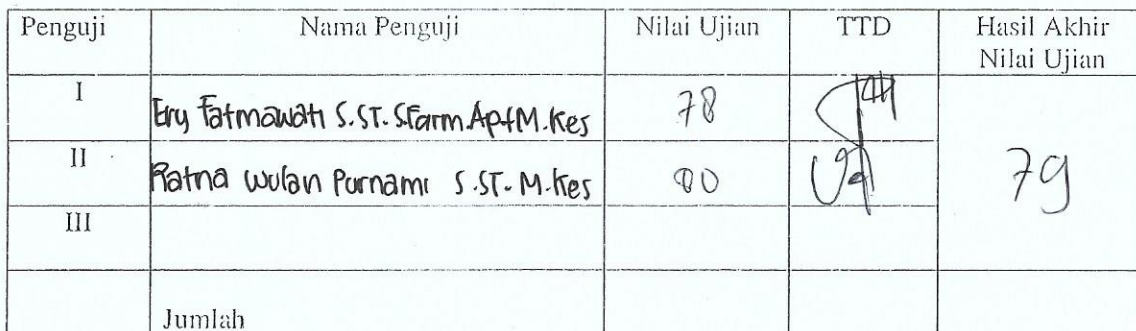 Penguji Nama Penguji Nilai Ujian TTD Hasil Akhir
Nilai Ujian
I Ery Fatmawati S.ST. S.Farm.Apt M.Kes 78
II Ratna Wulan Purnami S.ST. M.Kes 80 79
III
Jumlah